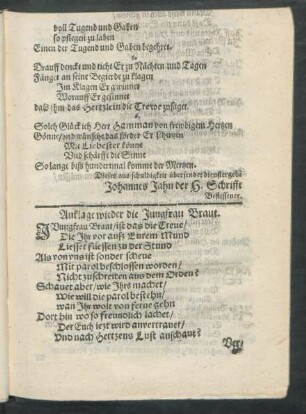 voll Tugend und Gaben
so pflegen zu laben
Einen der Tugend und Gaben begehret.
5.
Drauff denckt und ticht Er zu Nächten und Tagen
Fänget an seine Begierde zu klagen
Im Klagen Er gewinnet
Worauff Er gesinnet
daß ihm das Hertzlein die Trewe zusaget.
6.
Solch Glück ich Herr Hamman von frewdigem Hertzen
Gönne/und wünsche das
Wie Liebester könne
Und schärffe die Sinne
So lange biß hundertmal komme der Mertzen.
Dieses aus schuldigkeit übersendet dienstergebē
Johannes Jahn der H. Schrifft
Beflissener.
Anklage wieder die Jungfrau Braut.
JUngfrau Braut/ist das die Treue/
Die Ihr vor auß Eurem Mund
Liesset fliessen zu der Stund
Als von uns ist sonder scheue
Mit parol beschlossen worden/
Nicht zuschreiten aus dem Orden?
Schauet aber/wie Ihrs machet/
Wie will die parol bestehn/
wan Ihr wolt von ferne gehn
Dort hin wo so freundlich lachet/
Der Euch jezt wird anvertrauet/
Und nach Hertzens Lust anschaut?